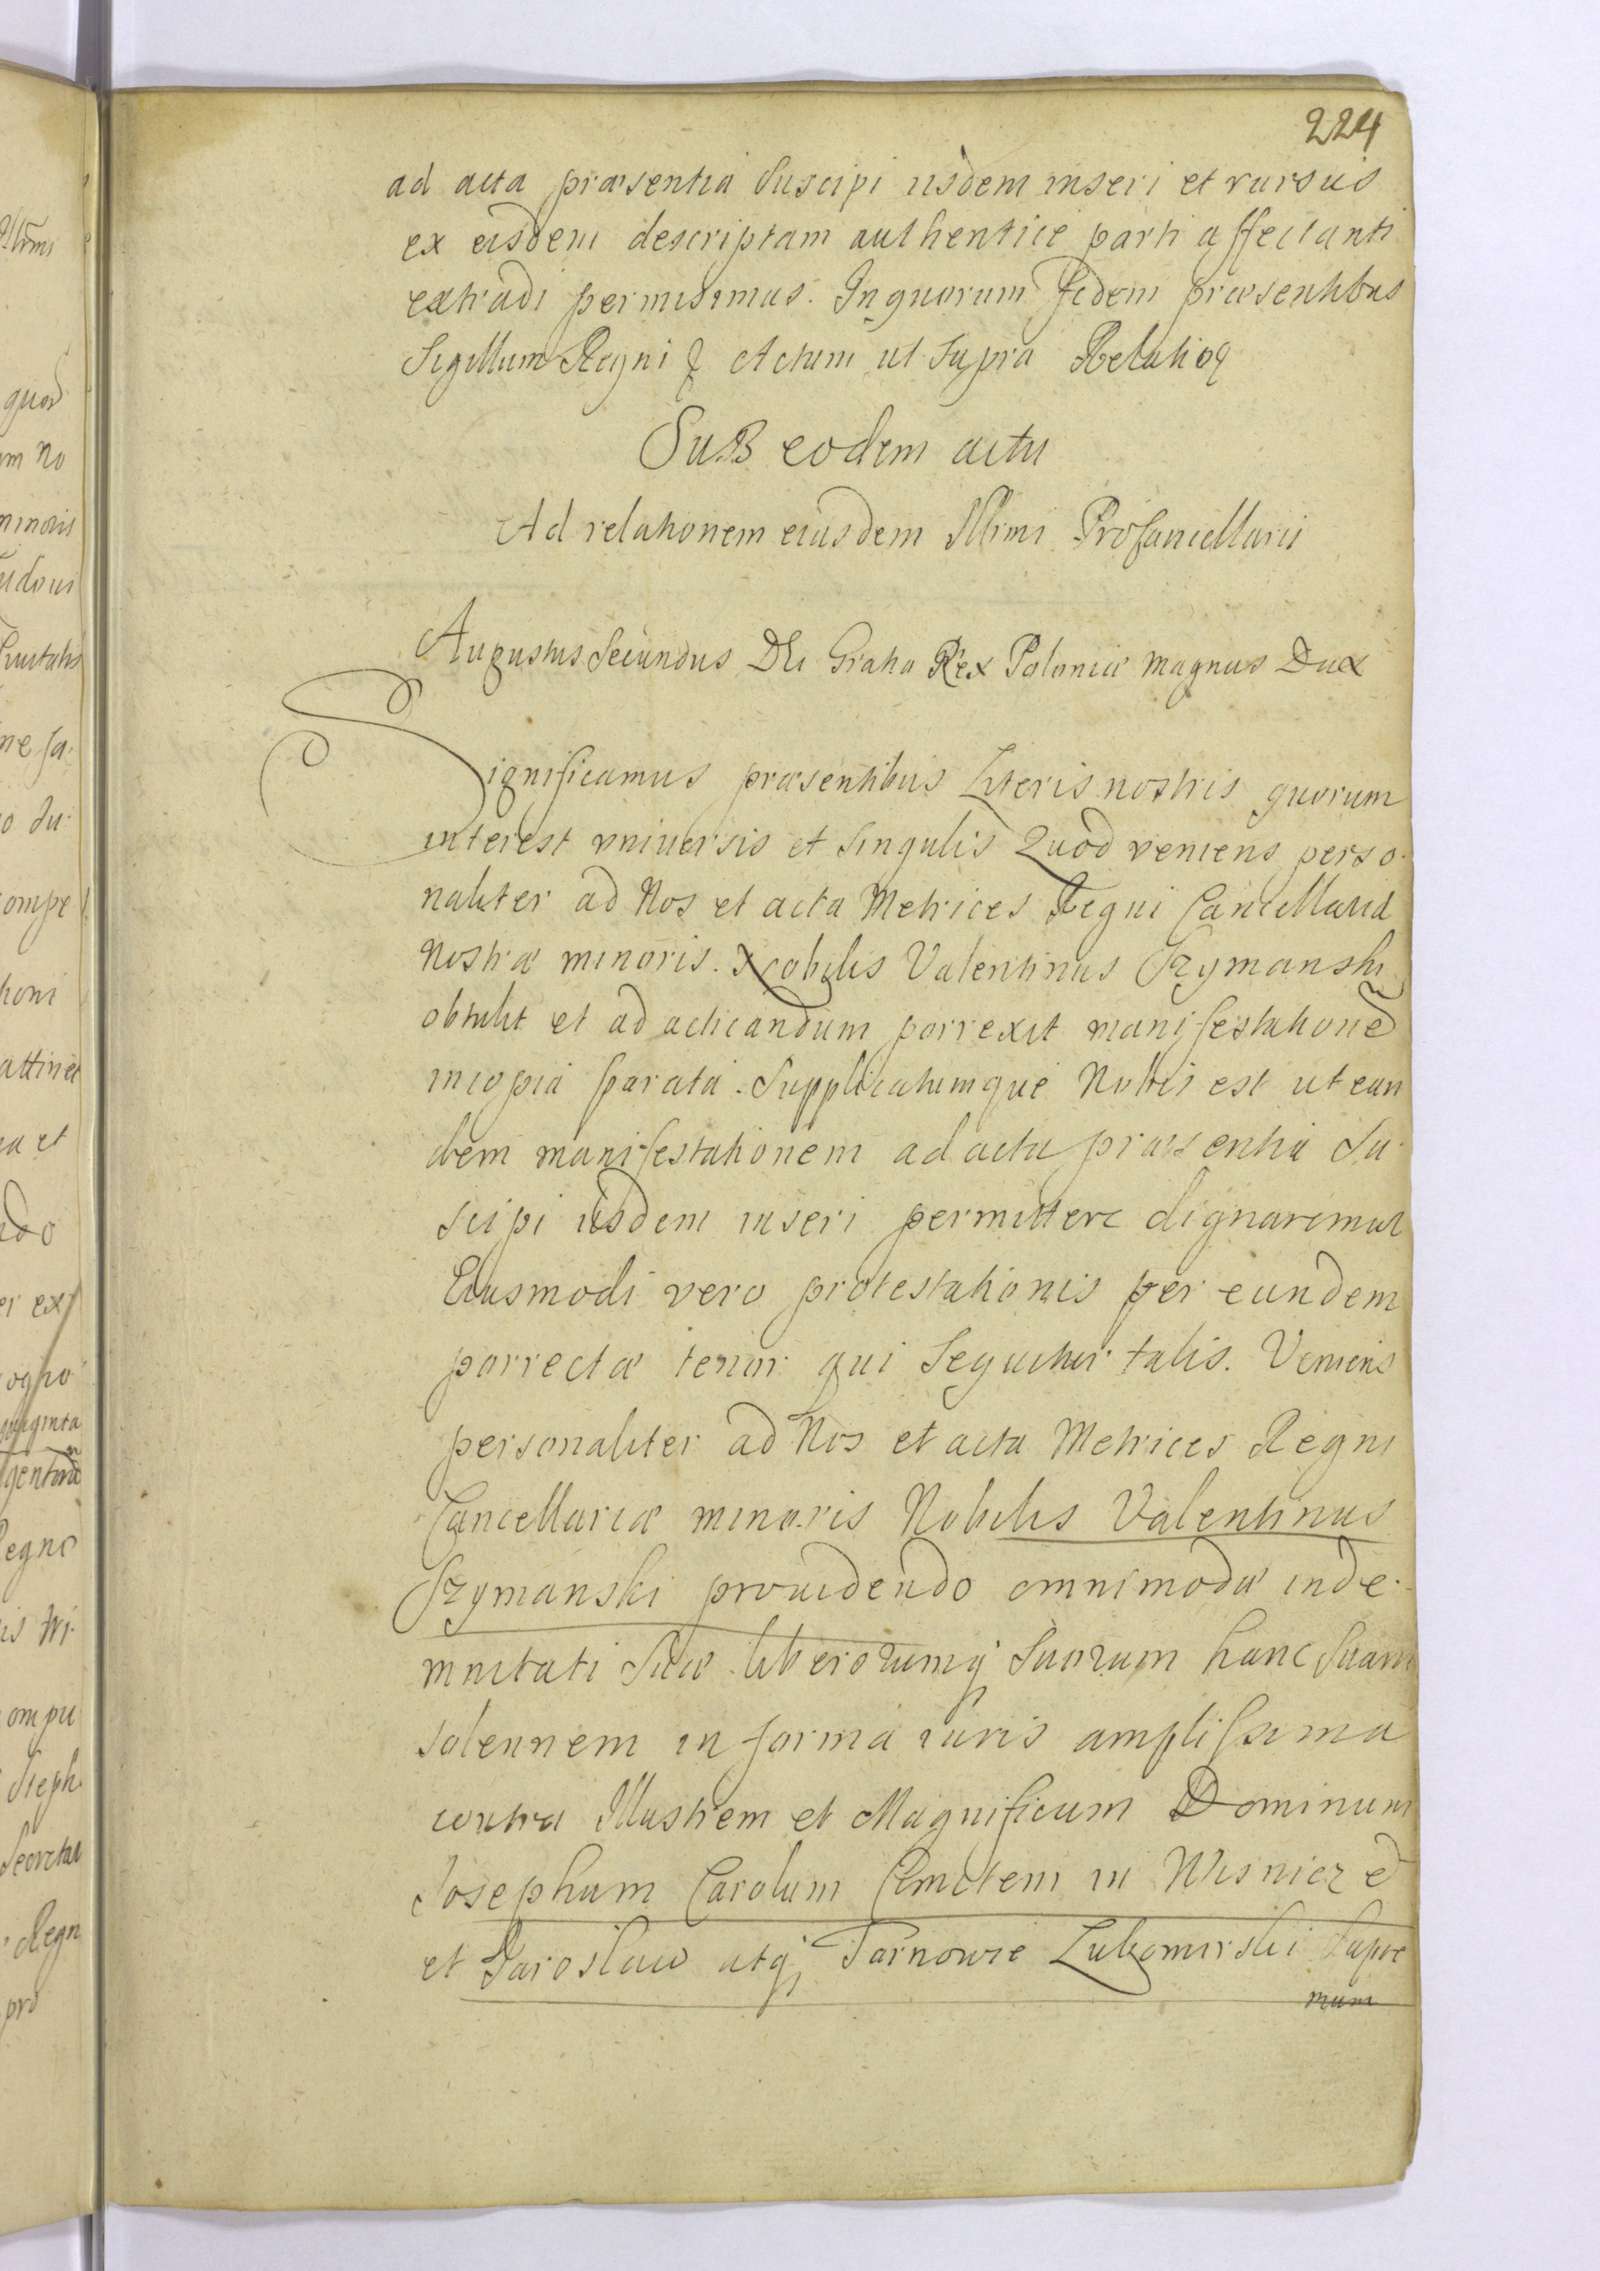 224
ad acta præsentia Suscipi iisdem inseri et rursus
ex eisdem descriptam authentice parti affectanti
extradi permisimus. In quorum fidem præsentibus
Sigillum Regni Actum ut Supra Relatio
SuB eodem actu
Ad relationem eiusdem Illmi ProCancellarii
Augustus Secundus DEi Gratia Rex Poloniæ Magnus Dux
Significamus præsentibus Literis nostris quorum
interest vniuersis et Singulis Quod veniens perso-
naliter ad Nos et acta Metrices Regni Cancellariæ
Nostræ minoris. Nobilis Valentinus Szymanski
obtulit et ad acticandum porrexit manifestationē
in copia parata. Supplicatumque Nobis est ut ean
dem manifestationem ad acta præsentia Su-
scipi iisdem inseri permittere dignaremur
Eiusmodi vero protestationis per eundem
porrectæ tenor qui Sequitur talis. Veniens
personaliter ad Nos et acta Metrices Regni
Cancellariæ minoris Nobilis Valentinus
Szymanski prouidendo omnimodæ inde-
mnitati Suæ liberorumq Suorum hanc Suam
solennem in forma iuris amplissima
contra Illustrem et Magnificum Dominum
Josephum Carolum Comitem in Wisnicz
et Jaroslaw atq Tarnowie Lubomirski Supre
mum
ompe
honi
attinet
a et
er ex
Regno
ompu
Steph
Regn
pro